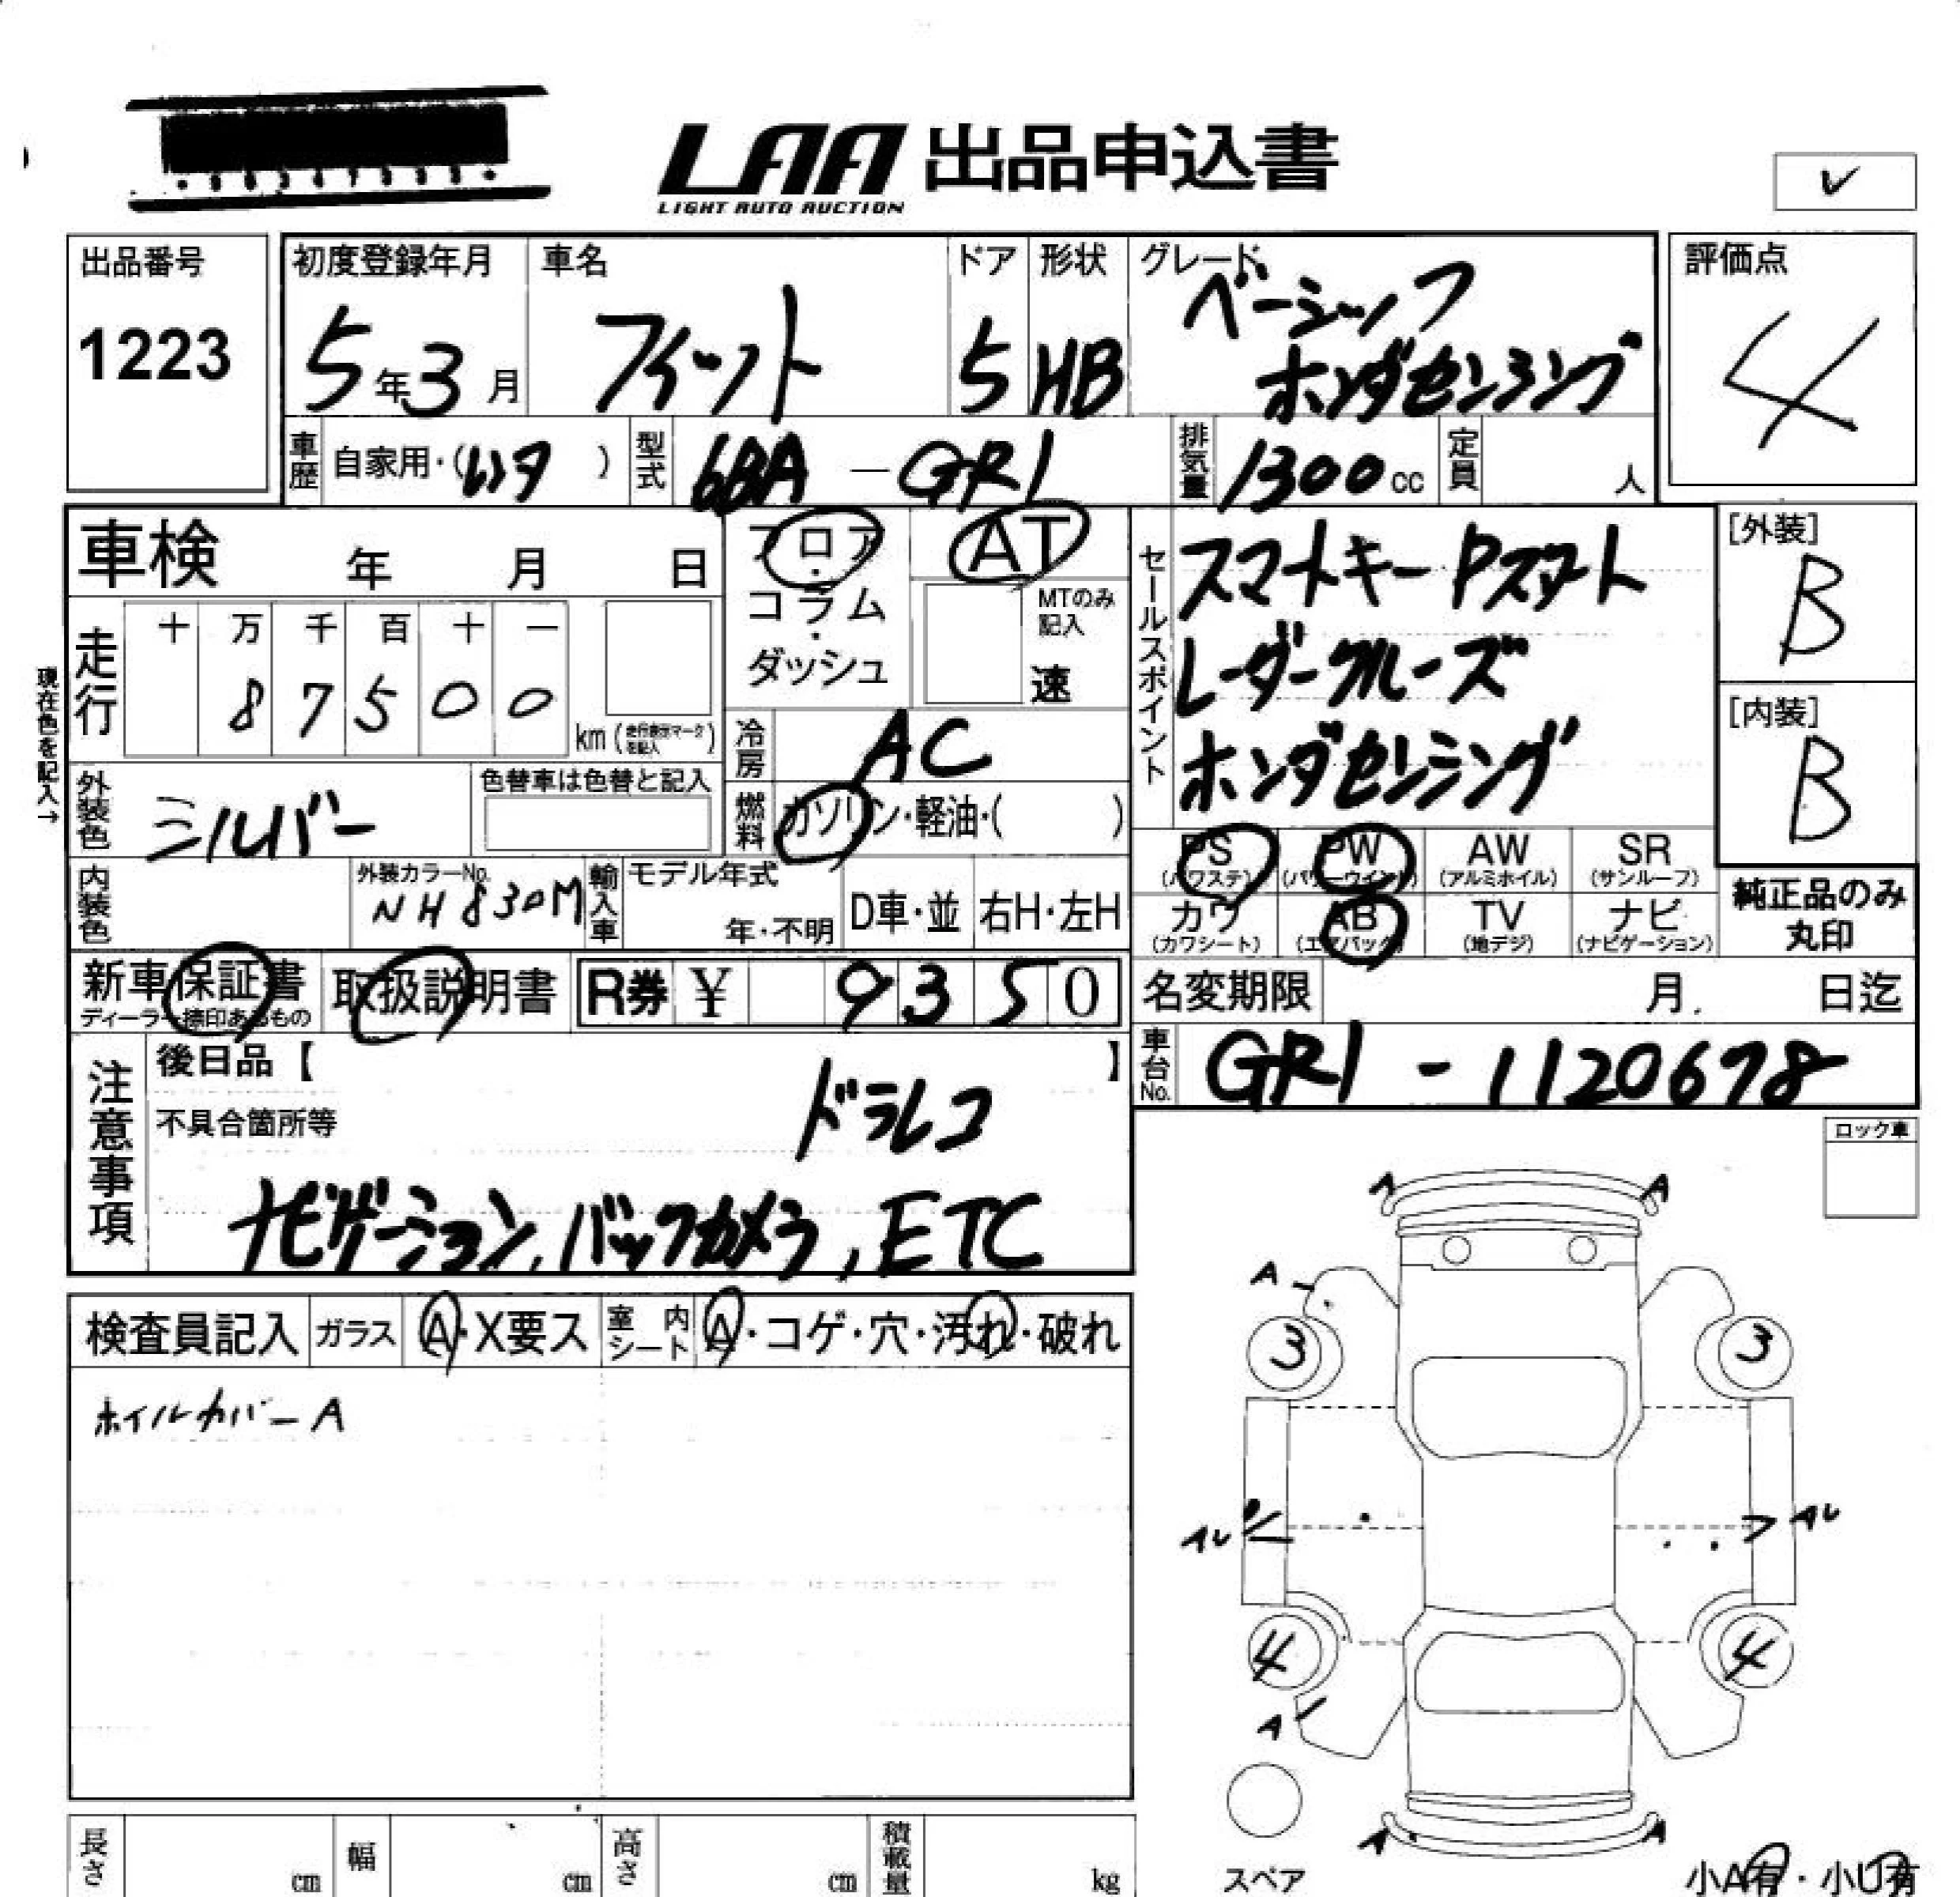 LAA 出品申込書
LIGHT AUTO AUCTION
✓
出品番号
1223
初度登録年月
5年3月
車名
フィット
ドア
5
形状
HB
グレード
ベーシック
ホンダセンシング
評価点
4
車歴 自家用・(レンタ)
型式 6BA-GR1
排気量 1300cc
定員 人
車検 年 月 日
フロア・コラム・ダッシュ
AT
MTのみ記入
速
走行
十 万 千 百 十 一
8 7 5 0 0
km(走行表示マークを記入)
現在色を記入→
冷房 AC
燃料 ガソリン・軽油・( )
セールスポイント
スマートキー Pスタート
レーダークルーズ
ホンダセンシング
[外装]
B
[内装]
B
外装色 シルバー
色替車は色替と記入
内装色
外装カラーNo.
NH830M
輸入車
モデル年式
年・不明
D車・並
右H・左H
PS
(パワステ)
PW
(パワーウインド)
AW
(アルミホイル)
SR
(サンルーフ)
カワ
(カワシート)
AB
(エアバック)
TV
(地デジ)
ナビ
(ナビゲーション)
純正品のみ
丸印
新車保証書
ディーラー捺印あるもの
取扱説明書
R券 ¥ 9 3 5 0
名変期限 月 日迄
車台No. GR1-1120678
注意事項
後日品【 】
ドラレコ
不具合箇所等
ナビゲーション, バックカメラ, ETC
ロック車
検査員記入
ガラス A・X要ス
室内シート A・コゲ・穴・汚れ・破れ
ホイルカバーA
A A
A
3 3
AU AU
4 4
A
A A
スペア
小A有・小U有
長さ cm
幅 cm
高さ cm
積載量 kg